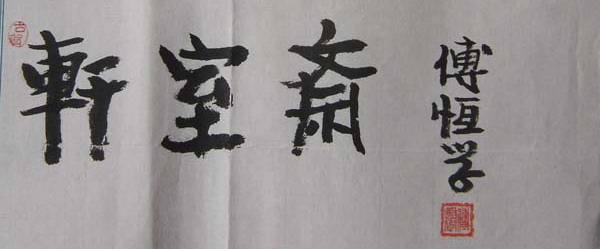 軒室斋
傅恒学